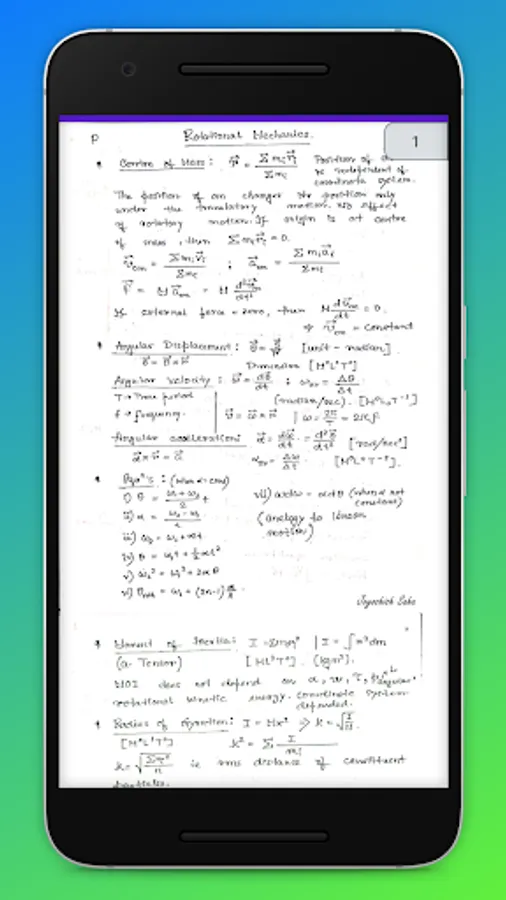 P
Rotational Mechanics.
1
* Centre of Mass : r⃗ = Σmᵢr⃗ᵢ / Σmᵢ Position of
is independent of
coordinate system.
The position of cm changes its position only
under the translatory motion. No effect
of rotatory motion. If origin is at centre
of mass, then Σmᵢr⃗ᵢ = 0.
v⃗cm = Σmᵢv⃗ᵢ / Σmᵢ ; a⃗cm = Σmᵢa⃗ᵢ / Σmᵢ
F⃗ = M a⃗cm = M
If external force = zero, then M dv⃗cm/dt = 0.
⇒ v⃗cm = constant
* Angular Displacement : [unit - radian].
Dimension [M⁰L⁰T⁰]
Angular velocity : ω⃗ = dθ⃗/dt ; ωav = Δθ/Δt
T → Time period (radian/sec). [M⁰L⁰T⁻¹]
f → frequency. v⃗ = ω⃗ × r⃗ | ω = 2π/T = 2πf
Angular acceleration : α⃗ = dω⃗/dt = d²θ⃗/dt² [rad/sec²]
αav = Δω/Δt [M⁰L⁰T⁻²].
* Eqn's : (when α = const)
i) θ = (ω₁ + ω₂)/2 t
ii) α = (ω₂ - ω₁)/t
iii) ω₂ = ω₁ + αt
iv) θ = ω₁t + ½αt²
v) ω₂² = ω₁² + 2αθ
vi) θnth = ω₁ + (2n-1) α/2
vii) ωdω = αdθ (when α not
constant)
(analogy to linear
motion)
* Moment of Inertia : | I = ∫r²dm
(a Tensor) [ML²T⁰]. (kgm²).
MOI does not depend on α, ω, τ,
rotational kinetic energy. coordinate system
depended.
* Radius of Gyration : I = Mk² ⇒ k = √(I/M).
[M⁰L¹T⁰]
k = √(Σr²/n) is rms distance of constituent
particles.